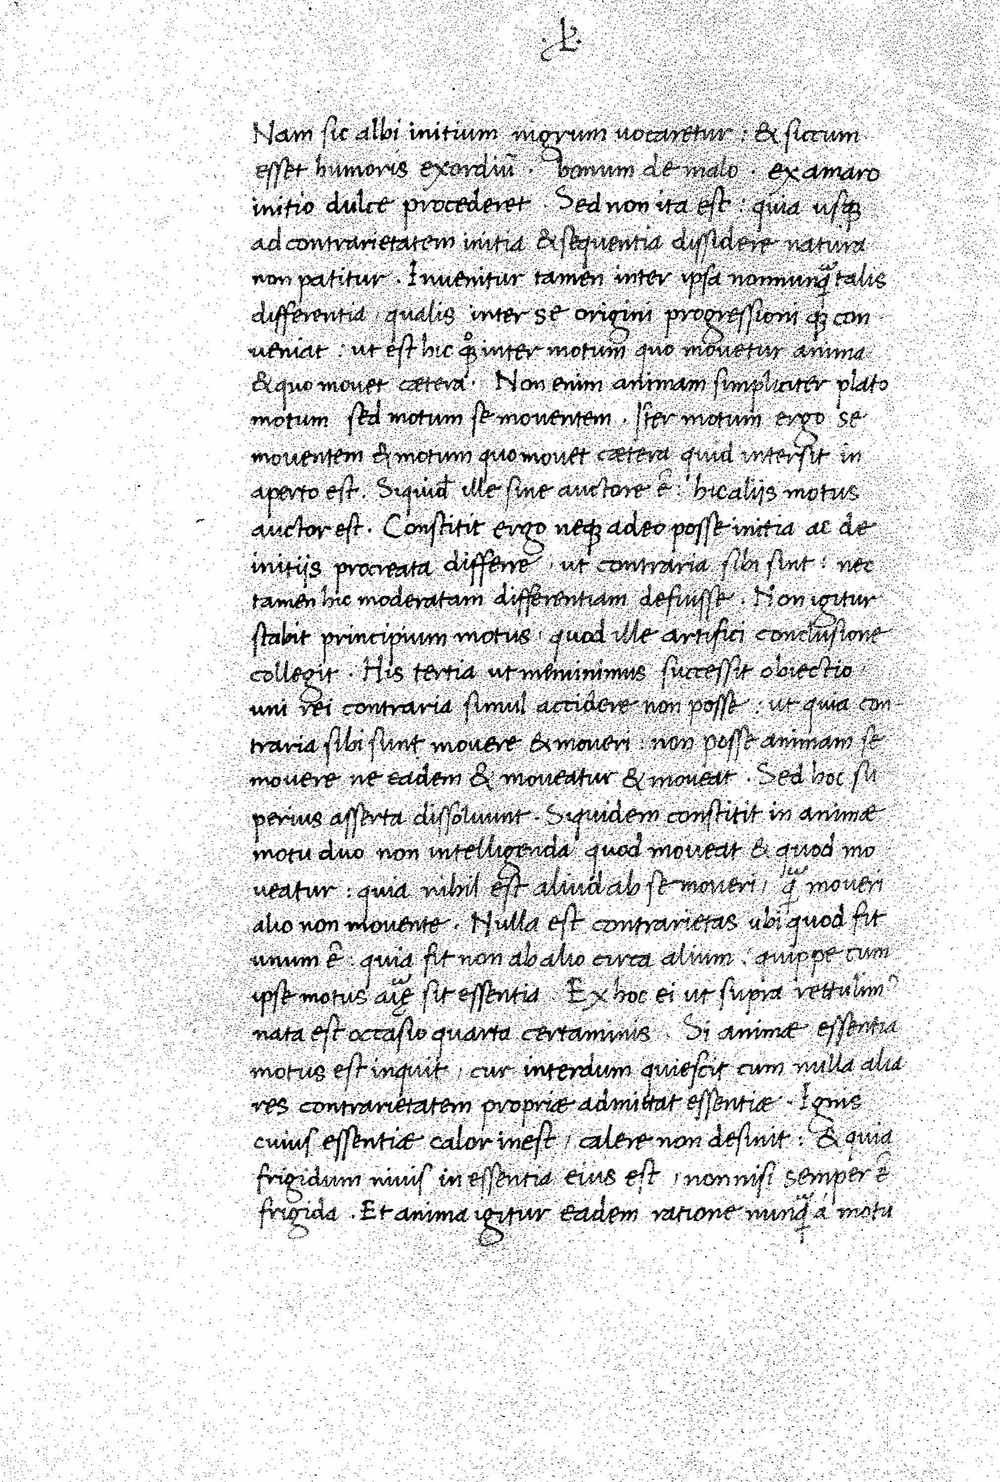 .L.
Nam sic albi initium nigrum vocaretur : & siccum
esset humoris exordiū . bonum de malo . ex amaro
initio dulce procederet . Sed non ita est : quia usqꝫ
ad contrarietatem initia & sequentia dissidere natura
non patitur . Invenitur tamen inter ipsa nonnunq̃ talis
differentia , qualis inter se origini progressioni qꝫ con
veniat : ut est hic qꝫ inter motum quo movetur anima
& quo movet cætera . Non enim animam simpliciter plato
motum sed motum se moventem . Iter motum ergo se
moventem & motum quo movet cætera quid intersit in
aperto est . Siquid ille sine auctore ē : hic aliis motus
auctor est . Constitit ergo neqꝫ adeo posse initia ac de
initijs procreata differre , ut contraria sibi sint : nec
tamen hic moderatam differentiam defuisse . Non igitur
stabit principium motus , quod ille artifici conclusione
collegit . His tertia ut meminimus successit obiectio ,
uni rei contraria simul accidere non posse : ut quia con-
traria sibi sunt movere & moveri : non posse animam se
movere ne eadem & moveatur & moveat . Sed hoc su
perius asserta dissolvunt . Siquidem constitit in animæ
motu duo non intelligenda quod moveat & quod mo
veatur : quia nihil est aliud ab se moveri , q̃ moveri
alio non movente . Nulla est contrarietas ubi quod fit
unum ē : quia fit non ab alio circa alium : quippe cum
ipse motus aīę sit essentia . Ex hoc ei ut supra rettulimꝰ
nata est occasio quarta certaminis . Si animæ essentia
motus est inquit , cur interdum quiescit cum nulla alia
res contrarietatem propriæ admittat essentiæ . Ignis
cuius essentiæ calor inest , calere non desinit : & quia
frigidum nivis in essentia eius est , non nisi semper ē
frigida . Et anima igitur eadem ratione nunq̃ á motu